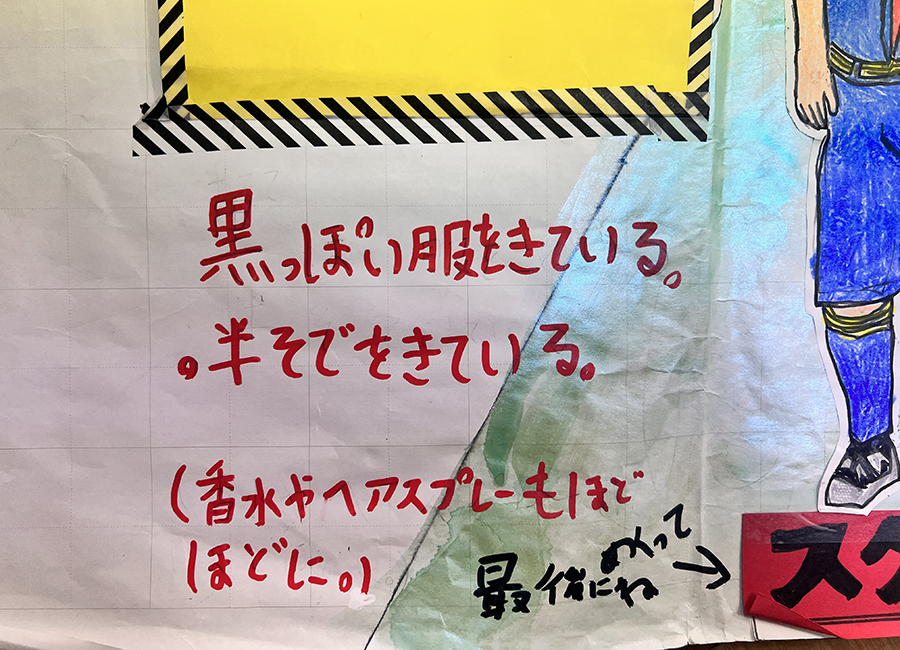 黒っぽい服をきている。
。半そでをきている。
(香水やヘアスプレーもほど
ほどに。)
最後にね
めくって
スク